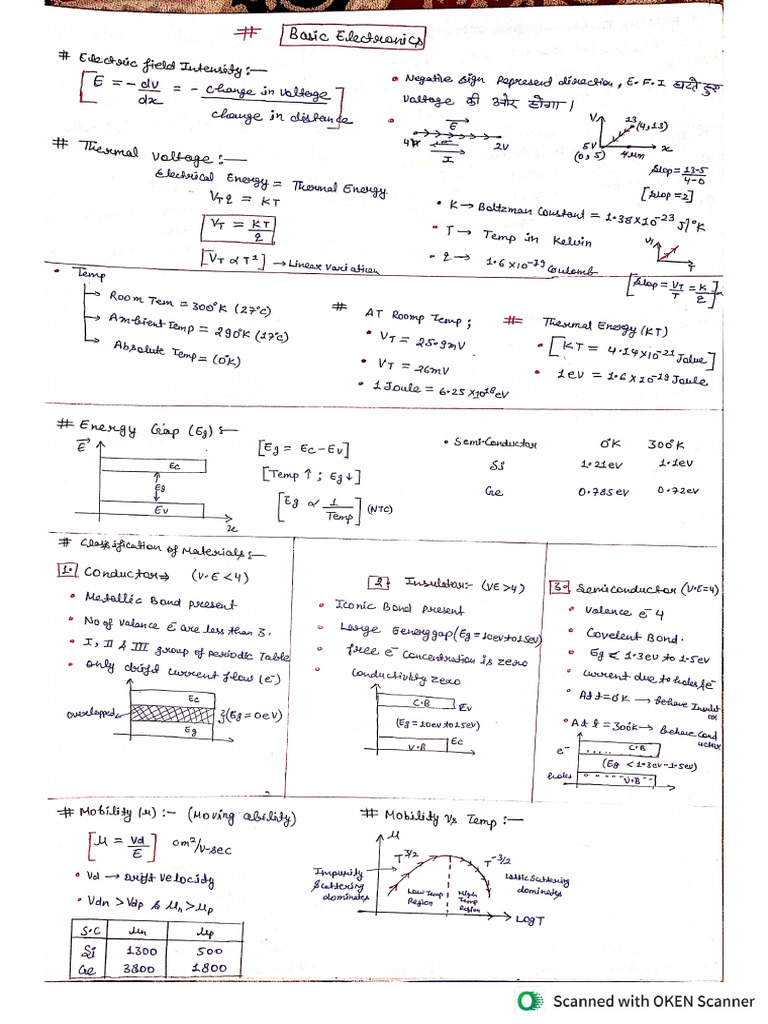 # Basic Electronics
# Electric field Intensity:—
[E = -dv/dx = - change in voltage/change in distance]
• Negative sign represent direction, E.F.I घटते हुए
voltage की ओर होगा।
E
2V
I
V
13
(4,13)
5V
(0,5)
4um
x
Slop = 13-5/4-0
[Slop=2]
# Thermal voltage:—
Electrical Energy = Thermal Energy
VTq = KT
VT = KT/q
[VT ∝ T¹] → Linear variation
• K → Boltzman Constant = 1.38×10⁻²³ J/°K
• T → Temp in Kelvin
• q → 1.6×10⁻¹⁹ Coulomb
VT
T
[Slop = VT/T = K/q]
• Temp
→ Room Tem = 300°K (27°C)
→ Ambient Temp = 290°K (17°C)
→ Absolute Temp = (0°K)
# AT Roomp Temp;
• VT = 25.9mV
• VT = 26mV
• 1 Joule = 6.25×10¹⁸ eV
# Thermal Energy (KT)
• [KT = 4.14×10⁻²¹ Joule]
• 1ev = 1.6×10⁻¹⁹ Joule
# Energy Gap (Eg):—
E
Ec
Eg
Ev
x
[Eg = Ec-Ev]
[Temp ↑ ; Eg ↓]
[Eg ∝ 1/Temp] (NTC)
• Semi-Conductor 0°K 300°K
Si 1.21ev 1.1ev
Ge 0.785ev 0.72ev
# Classification of Materials:—
1. Conductor→ (V.E<4)
• Metallic Bond present
• No of valance e⁻ are less than 3.
• I, II & III group of periodic Table
• only drift current flow (e⁻)
Ec
overlapped
}(Eg=0eV)
Eg
2. Insulator:- (VE>4)
• Iconic Bond present
• Large Energgap (Eg=10ev to 15ev)
• free e⁻ Concentration is zero
• Conductivity zero
C.B Ev
(Eg=10ev to 15ev)
V.B Ec
3. Semiconductor (V.E=4)
• Valance e⁻ 4
• Covelent Bond.
• Eg < 1.3ev to 1.5ev
• Current due to holes & e⁻
• At t=0°K → behave Insulat
or
• At t = 300k → behave Cond
uctor
e⁻ C.B
(Eg < 1.3ev-1.5ev)
holes V.B
# Mobility (μ):- (Moving ability)
[μ = Vd/E] cm²/v-sec
• Vd → Drift velocity
• Vdn > Vdp & μn > μp
S.C μn μp
Si 1300 500
Ge 3800 1800
# Mobility Vs Temp:—
μ
T³/² T⁻³/²
Impurity
Scattering
dominates
Low Temp
Region
High
Temp
Region
Lattic Scattering
dominates
Log T
Scanned with OKEN Scanner